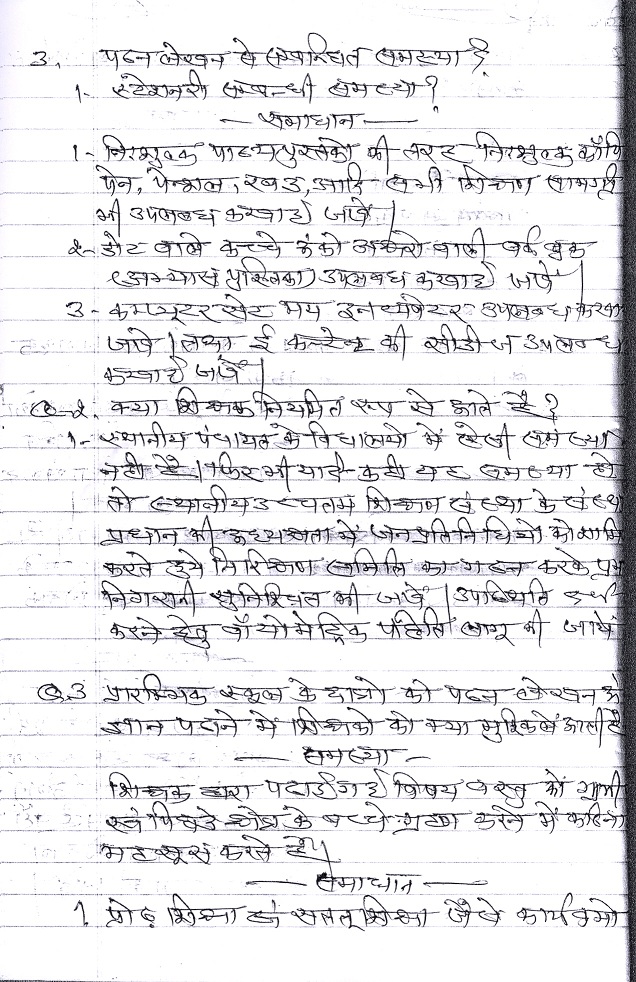 3. पठन लेखन से सम्बन्धित समस्या है?
1- स्टेशनरी सम्बन्धी समस्या?
— समाधान —
1- निःशुल्क पाठ्यपुस्तकों की तरह निःशुल्क कॉपि
पेन, पेन्सिल, रबड़, आदि सभी शिक्षण सामग्री
भी उपलब्ध करवाई जावें।
2- डोट वाले कच्चे अक्षरो वाली वर्क बुक
(अभ्यास पुस्तिका) उपलब्ध करवाई जावें।
3- कम्प्यूटर सेट मय इनवर्टर उपलब्ध करवा
जावे। तथा ई कन्टेन्ट की सीडीज उपलब्ध
करवाई जावें।
Q-2. क्या शिक्षक नियमित रूप से आते है?
1- स्थानीय पंचायत के विधालयो में ऐसी समस्या
नही है। फिर भी यदि कही यह समस्या हो
तो स्थानीय उच्चतम शिक्षण संस्था के संस्था
प्रधान की अध्यक्षता में जनप्रतिनिधियो को शामि
करते हुये निरिक्षण समिति का गठन करके
निगरानी सुनिश्चित की जावें। उपस्थिति दर्ज
करने हेतु बॉयोमेट्रिक पद्धति लागू की जावें
Q.3 प्रारम्भिक स्कूल के छात्रो को पठन लेखन का
ज्ञान पढाने में शिक्षको को क्या मुश्किलें आती है
— समस्या —
शिक्षक द्वारा पढाई गई विषय वस्तु को ग्रामी
एवं पिछडे क्षेत्र के बच्चे ग्रहण करने में कठिना
महसूस करते है।
— समाधान —
1. प्रोढ़ शिक्षा एवं सतत् शिक्षा जैसे कार्यक्रमो